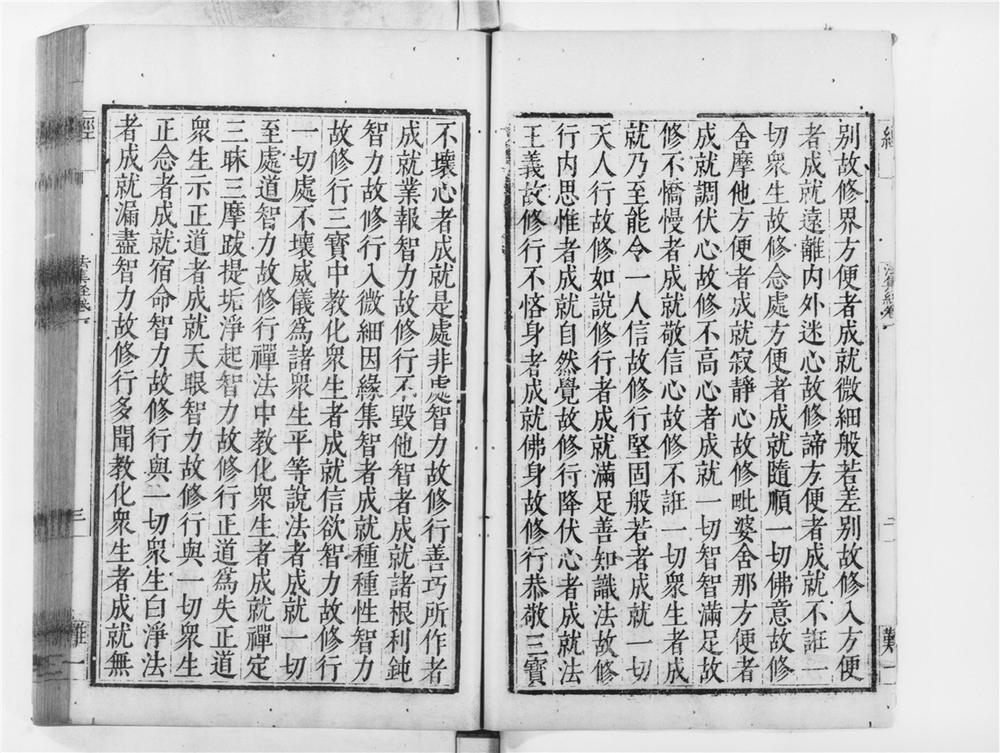 別故修界方便者成就微細般若差別故修入方便
者成就遠離內外迷心故修諦方便者成就不誑一
切衆生故修念處方便者成就隨順一切佛意故修
舍摩他方便者成就寂靜心故修毗婆舍那方便者
成就調伏心故修不高心者成就一切智智滿足故
修不憍慢者成就敬信心故修不誑一切衆生者成
就乃至能令一人信故修行堅固般若者成就一切
天人行故修如說修行者成就滿足善知識法故修
行內思惟者成就自然覺故修行降伏心者成就法
王義故修行不悋身者成就佛身故修行恭敬三寶
不壞心者成就是處非處智力故修行善巧所作者
成就業報智力故修行不毀他智者成就諸根利鈍
智力故修行入微細因緣集智者成就種種性智力
故修行三寶中教化衆生者成就信欲智力故修行
一切處不壞威儀爲諸衆生平等說法者成就一切
至處道智力故修行禪法中教化衆生者成就禪定
三昧三摩跋提垢淨起智力故修行正道爲失正道
衆生示正道者成就天眼智力故修行與一切衆生
正念者成就宿命智力故修行與一切衆生白淨法
者成就漏盡智力故修行多聞教化衆生者成就無
法集經卷一
三